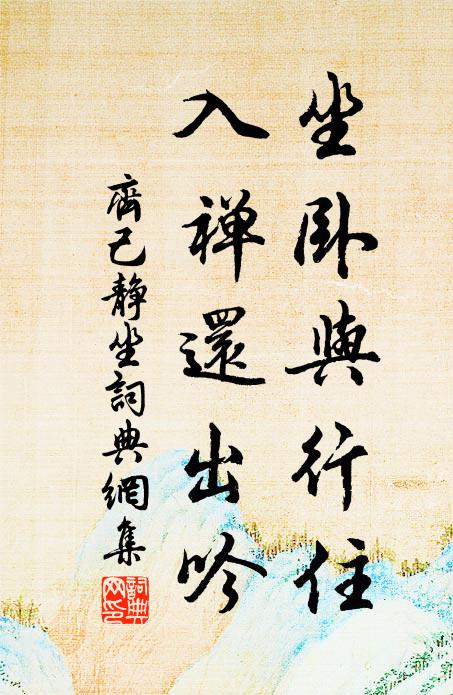 坐卧與行住
入禪還出吟
齊己靜坐詞典網集
詞典網印